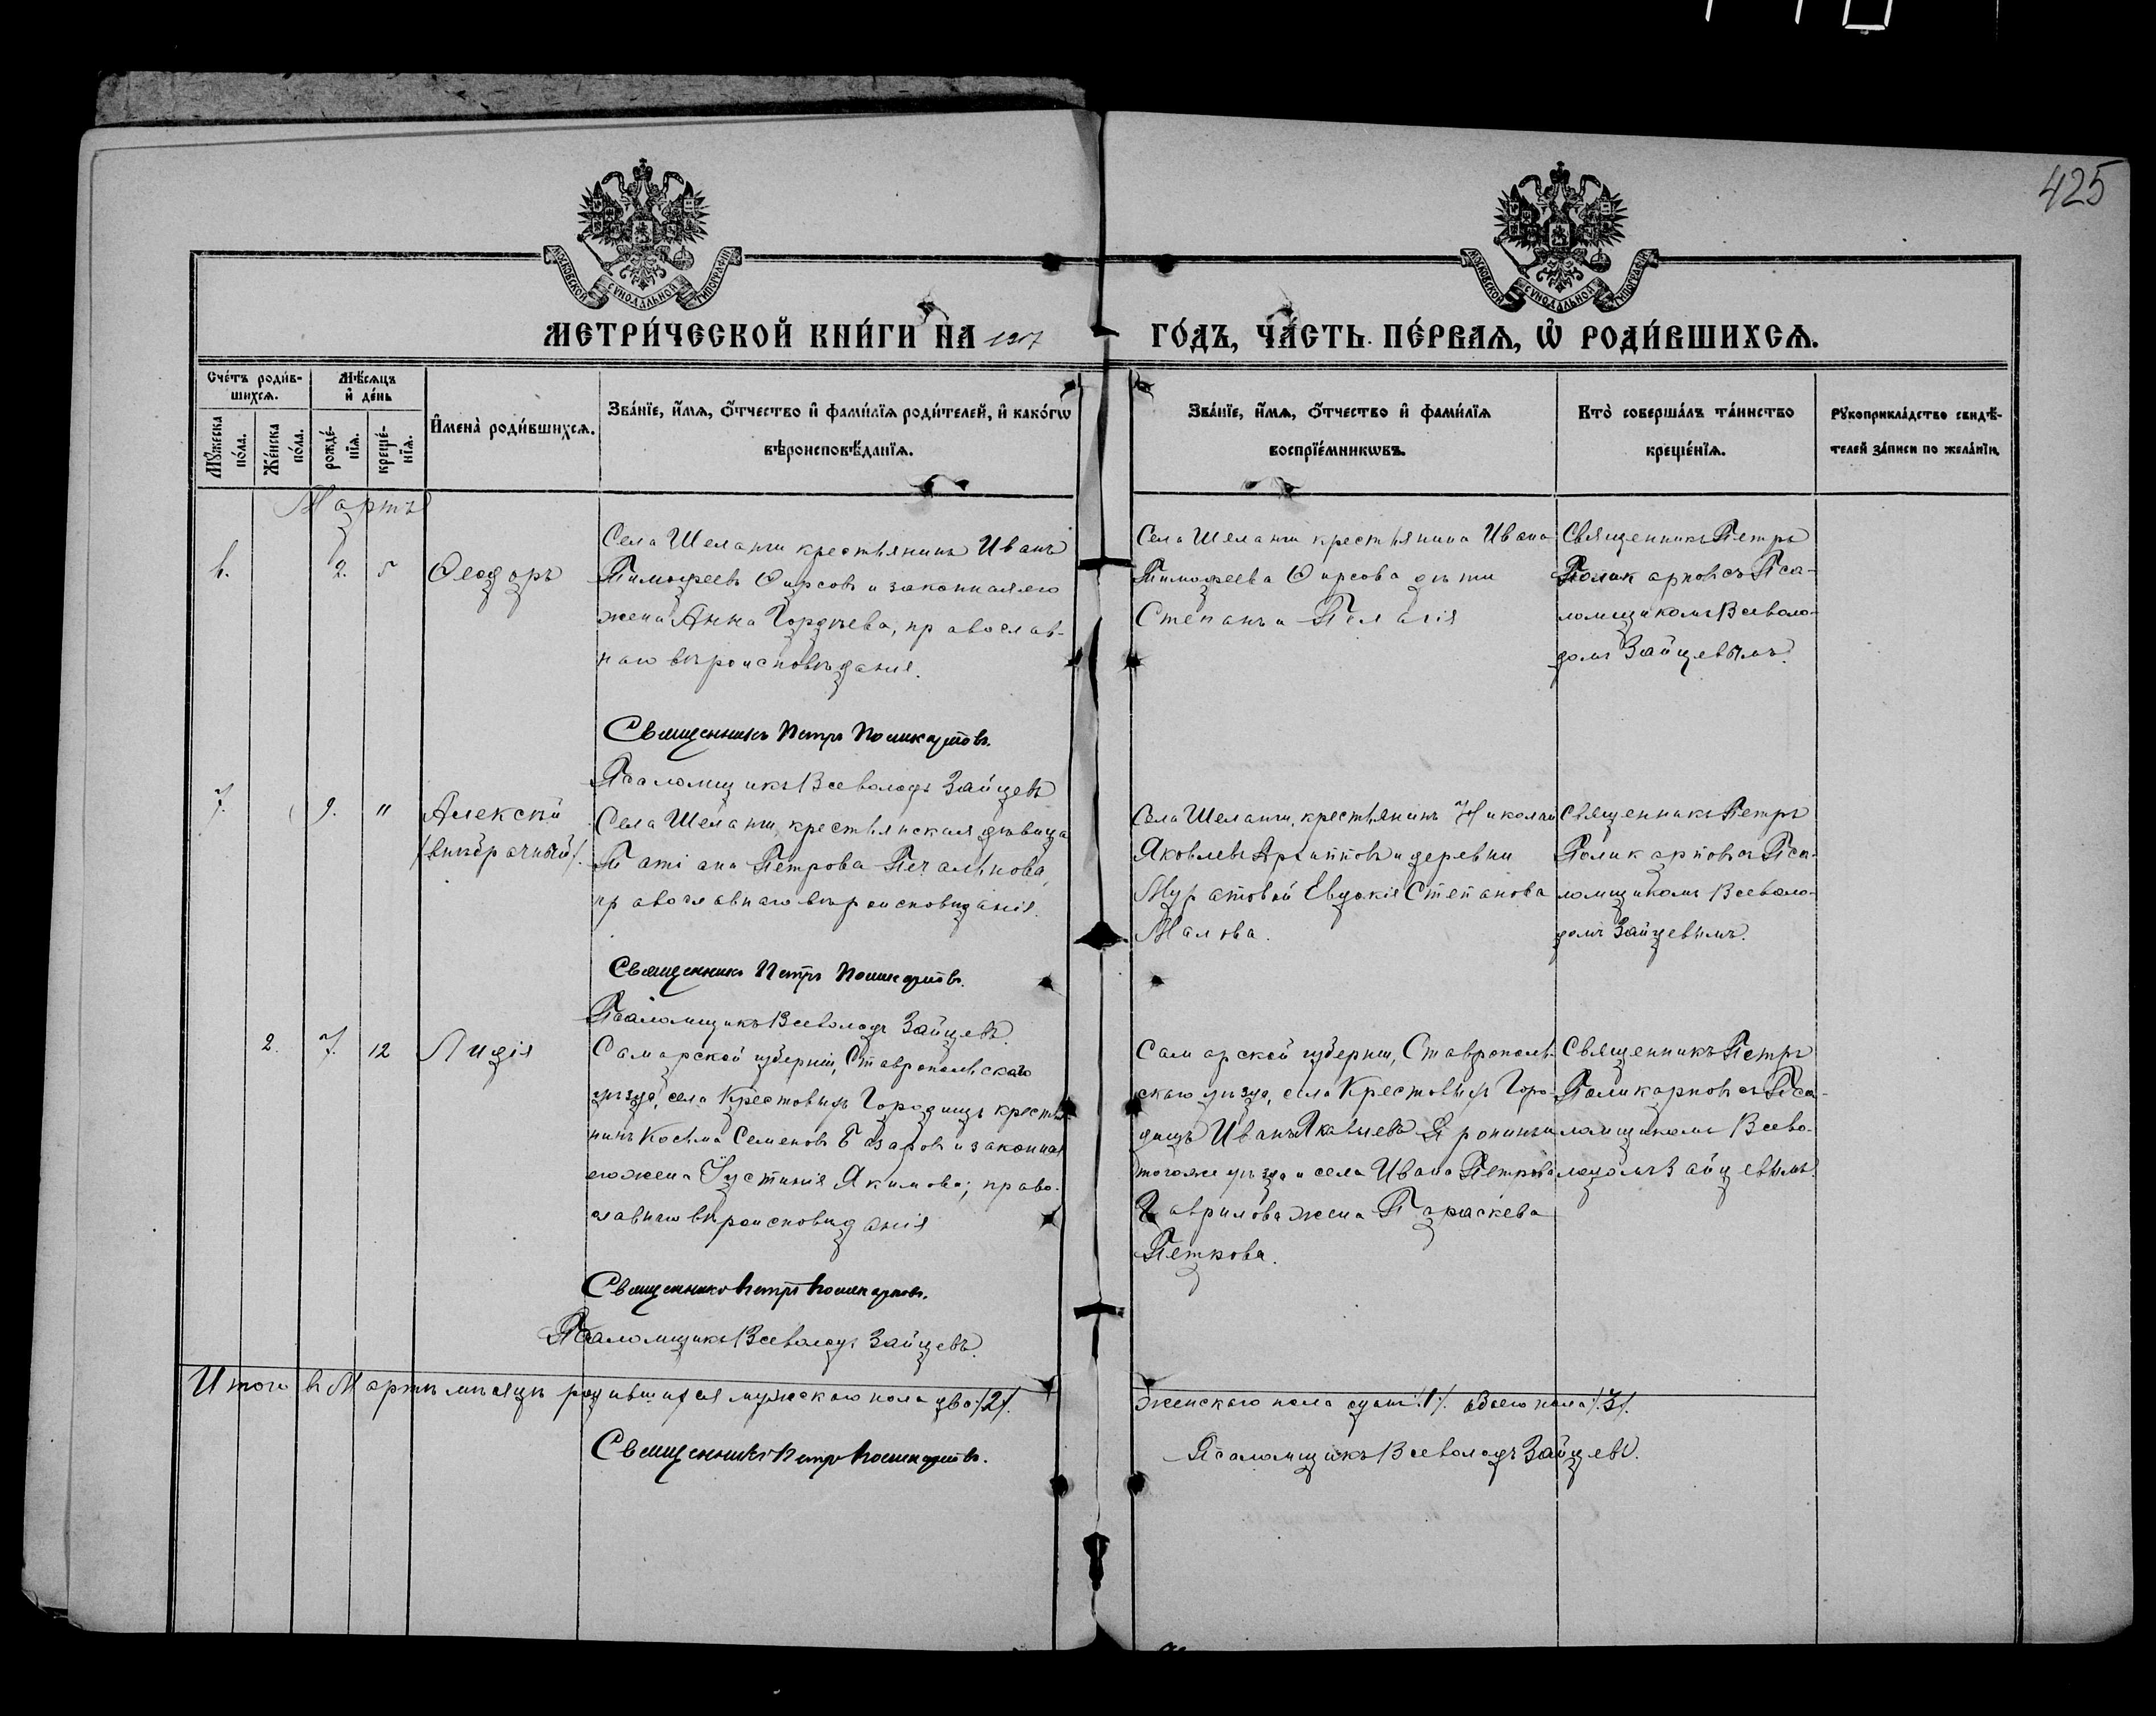 425
МОСКОВСКОЙ СУНОДАЛЬНОЙ ТИПОГРАФІИ
МОСКОВСКОЙ СУНОДАЛЬНОЙ ТИПОГРАФІИ
МЕТРИ́ЧЕСКОЙ КНИ́ГИ НА 1907 ГО́ДЪ, ЧА́СТЬ ПЕ́РВАѦ, Ѡ РОДИ́ВШИХСѦ.
Сче́тъ роди́в-
шихсѧ.
Мѹ́жеска по́ла.
Же́нска по́ла.
Мѣ́сѧцъ
и де́нь
рожде́-
нїѧ.
креще́-
нїѧ.
Имена̀ роди́вшихсѧ.
Зва́нїе, и́мѧ, ѻ́тчество и фами́лїѧ роди́телей, и како́гѡ
вѣроисповѣ́данїѧ.
Зва́нїе, и́мѧ, ѻ́тчество и фами́лїѧ
воспрїе́мникѡвъ.
Кто̀ соверша́лъ та́инство
креще́нїѧ.
Рѹкоприкла́дство свидѣ́-
телей за́писи по жела́нїю.
Мартъ
6.
2.
5
Ѳеодоръ
Села Шеланги крестьянинъ Иванъ
Тимофеевъ Ѳирсовъ и законная его
жена Анна Гордѣева, православ-
наго вѣроисповѣданія.
Священникъ Петръ Поликарповъ.
Псаломщикъ Всеволодъ Зайцевъ
Села Шеланги крестьянина Ивана
Тимофеева Ѳирсова дѣти
Степанъ и Пелагія
Священникъ Петръ
Поликарповъ съ Пса-
ломщикомъ Всеволо-
домъ Зайцевымъ.
7.
9.
11
Алексѣй
/внѣбрачный/.
Села Шеланги, крестьянская дѣвица
Татіана Петрова Печальнова,
православнаго вѣроисповѣданія.
Священникъ Петръ Поликарповъ.
Псаломщикъ Всеволодъ Зайцевъ.
Села Шеланги, крестьянинъ Николай
Яковлевъ Архиповъ и деревни
Муратовой Евдокія Степанова
Малова.
Священникъ Петръ
Поликарповъ съ Пса-
ломщикомъ Всеволо-
домъ Зайцевымъ.
2.
7.
12
Лидія
Самарской губерніи, Ставропольскаго
уѣзда, села Крестовыхъ Городищъ крестья
нинъ Косьма Семеновъ Базаровъ и законная
его жена Іустинія Якимова, право-
славнаго вѣроисповѣданія
Священникъ Петръ Поликарповъ.
Псаломщикъ Всеволодъ Зайцевъ.
Самарской губерніи, Ставрополь-
скаго уѣзда, села Крестовыхъ Горо-
дищъ Иванъ
тогоже уѣзда и села Ивана Петрова
Гаврилова жена Параскева
Петкова.
Священникъ Петръ
Поликарповъ съ Пса-
ломщикомъ Всево-
лодомъ Зайцевымъ.
Итого въ Мартѣ мѣсяцѣ родившихся мужскаго пола два /2/. женскаго пола одна /1/. обоего пола /3/.
Священникъ Петръ Поликарповъ.
Псаломщикъ Всеволодъ Зайцевъ.